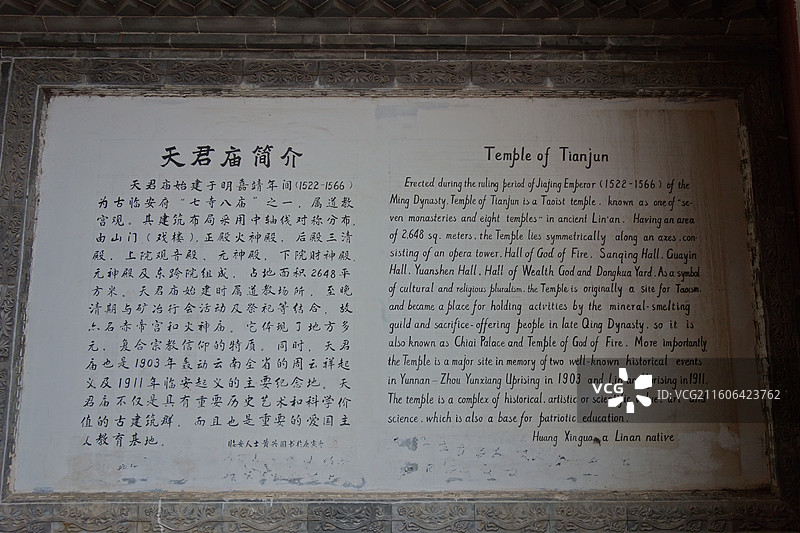 天君庙简介
天君庙始建于明嘉靖年间(1522-1566)
为古临安府“七寺八庙”之一，属道教
宫观。其建筑布局采用中轴线对称分布，
由山门（戏楼）、正殿火神殿、后殿三清
殿、上院观音殿、元神殿、下院财神殿、
元神殿及东跨院组成，占地面积2648平
方米。天君庙始建时属道教场所，至晚
清期与矿冶行会活动及祭祀等结合，故
亦名赤帝宫和火神庙。它体现了地方多
元、复合宗教信仰的特质。同时，天君
庙也是1903年轰动云南全省的周云祥起
义及1911年临安起义的主要纪念地。天
君庙不仅是具有重要历史艺术和科学价
值的古建筑群，而且也是重要的爱国主
义教育基地。
临安人士黄兴国书
Temple of Tianjun
Erected during the ruling period of Jiajing Emperor (1522-1566) of the
Ming Dynasty, Temple of Tianjun is a Taoist temple, known as one of "se-
ven monasteries and eight temples" in ancient Lin'an. Having an area
of 2,648 sq. meters, the Temple lies symmetrically along an axes, con-
sisting of an opera tower, Hall of God of Fire, Sanqing Hall, Guayin
Hall, Yuanshen Hall, Hall of Wealth God and Dongkua Yard. As a symbol
of cultural and religious pluralism, the Temple is originally a site for Taoism
and became a place for holding activities by the mineral-smelting
guild and sacrifice-offering people in late Qing Dynasty, so it is
also known as Chiai Palace and Temple of God of Fire. More importantly
the Temple is a major site in memory of two well-known historical events
in Yunnan-Zhou Yunxiang Uprising in 1903 and Lin'an Uprising in 1911.
The temple is a complex of historical, artistic or art and
science, which is also a base for patriotic education.
Huang Xinguo, a Linan native
VCG
VCG211606423762